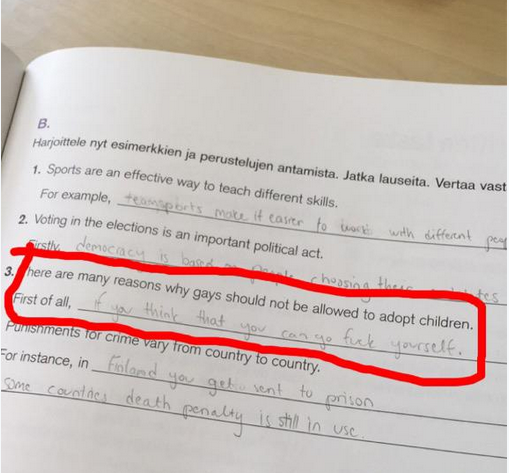 B.
Harjoittele nyt esimerkkien ja perustelujen antamista. Jatka lauseita. Vertaa vast
1. Sports are an effective way to teach different skills.
For example, teamsports make it easier to work with different peo
2. Voting in the elections is an important political act.
Firstly, democracy is based on people choosing these
3. There are many reasons why gays should not be allowed to adopt children.
First of all, if you think that you can go fuck yourself.
Punishments for crime vary from country to country.
For instance, in Finland you get sent to prison
some countries death penalty is still in use.